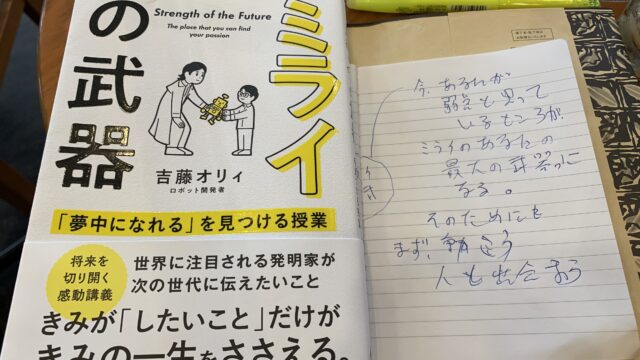 Strength of the Future
The place that you can find
your passion
ミライ
の武器
吉藤オリィ
ロボット開発者
「夢中になれる」を見つける授業
将来を
切り開く
感動講義
世界に注目される発明家が
次の世代に伝えたいこと
きみが「したいこと」だけが
きみの一生をささえる。
今、あなたが
弱点と思って
いるところが、
ミライのあなたの
最大の武器に
なる。
そのためにも
まず、
人と出会おう